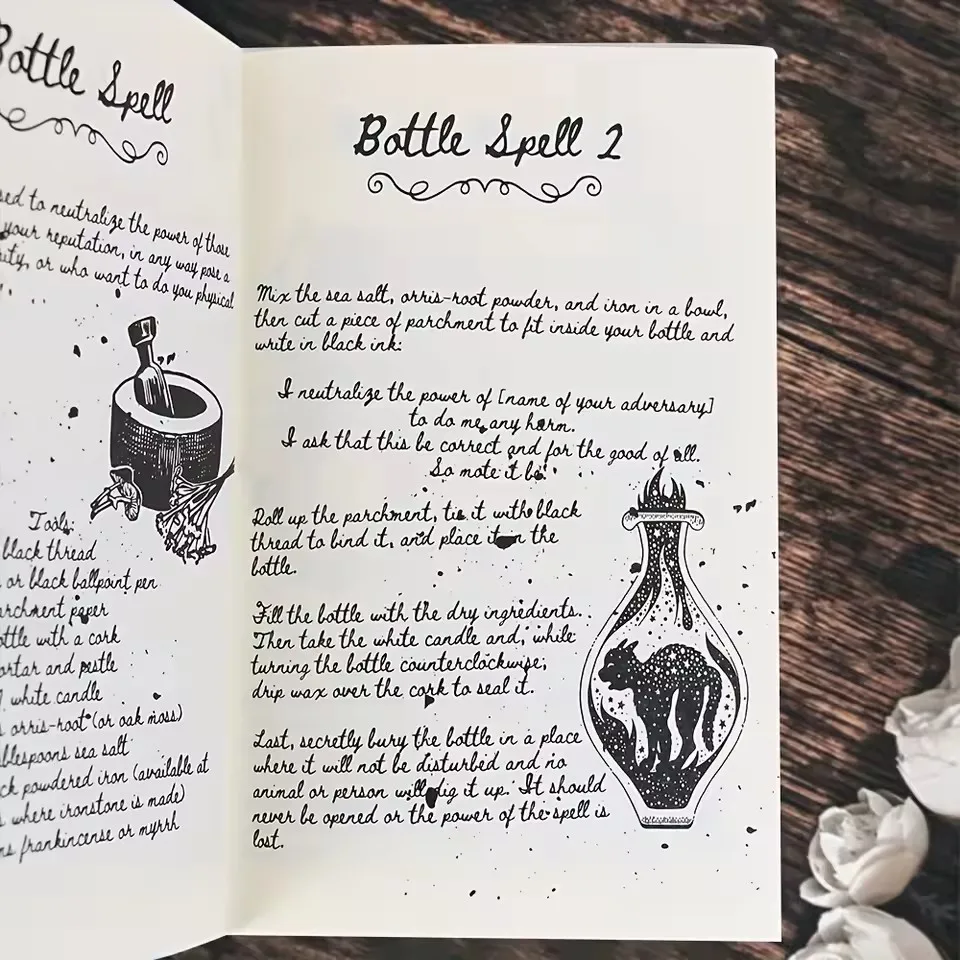 Bottle Spell
sed to neutralize the power of those
your reputation, in any way pose a
rity, or who want to do you physical
Tools:
black thread
or black ballpoint pen
archment paper
ottle with a cork
ortar and pestle
white candle
orris-root (or oak moss)
blespoons sea salt
ck powdered iron (available at
s where ironstone is made)
ns frankincense or myrrh
Bottle Spell 2
Mix the sea salt, orris-root powder, and iron in a bowl,
then cut a piece of parchment to fit inside your bottle and
write in black ink:
I neutralize the power of [name of your adversary]
to do me any harm.
I ask that this be correct and for the good of all.
So mote it be!
Roll up the parchment, tie it with black
thread to bind it, and place it in the
bottle.
Fill the bottle with the dry ingredients.
Then take the white candle and, while
turning the bottle counterclockwise,
drip wax over the cork to seal it.
Last, secretly bury the bottle in a place
where it will not be disturbed and no
animal or person will dig it up. It should
never be opened or the power of the spell is
lost.